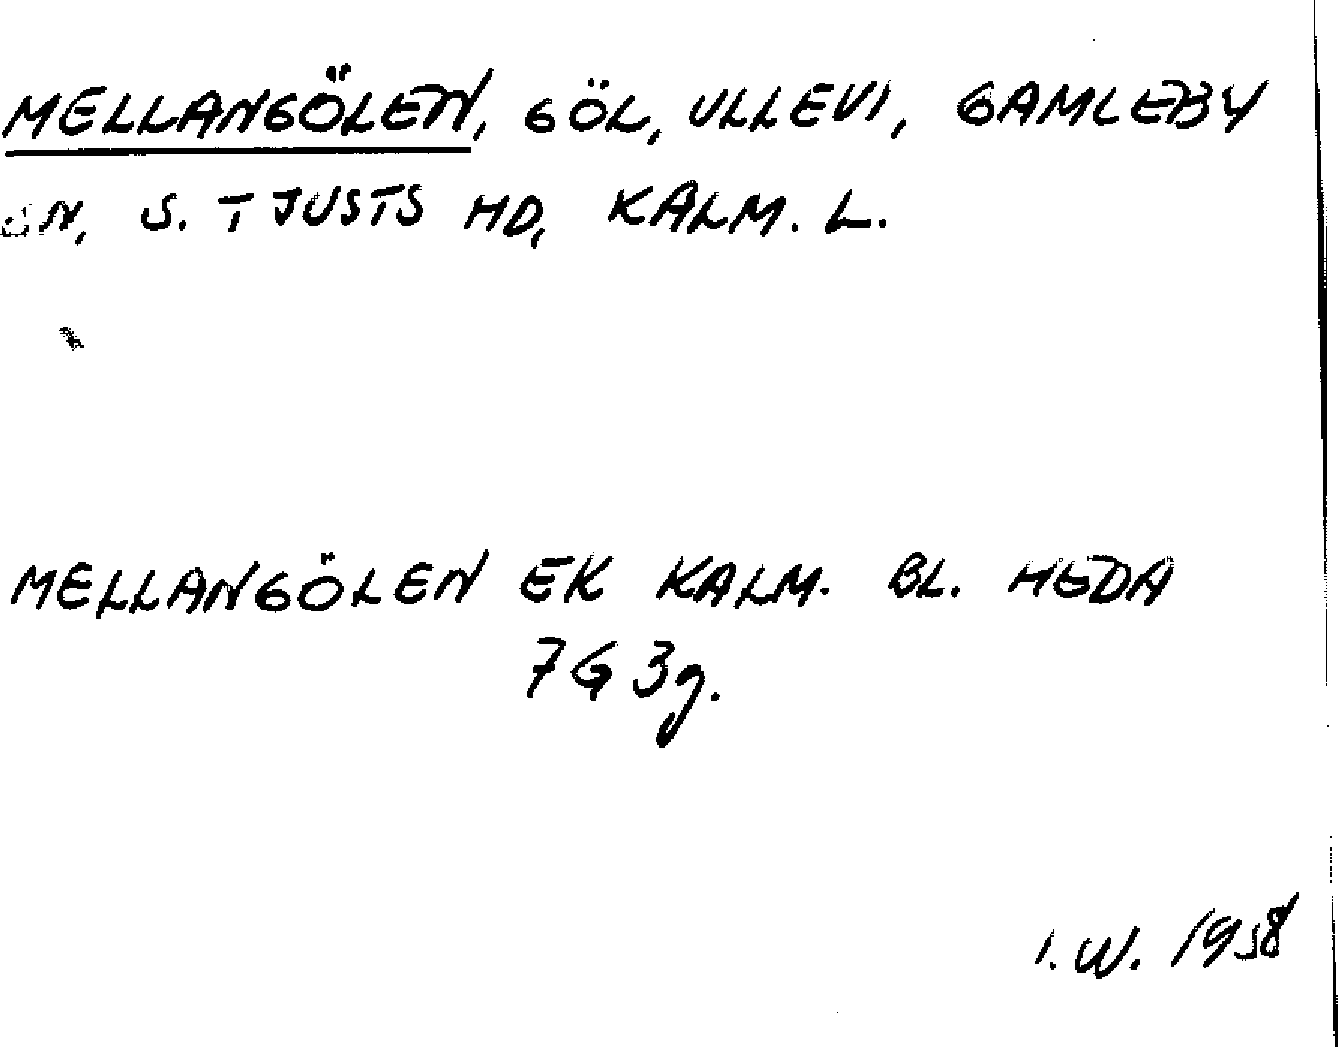 MELLANGÖLEN, GÖL, ULLEVI, GAMLEBY
SN, S. TJUSTS HD, KALM. L.
MELLANGÖLEN EK KALM. BL. HEDA
7G 3g.
I. W. 1958